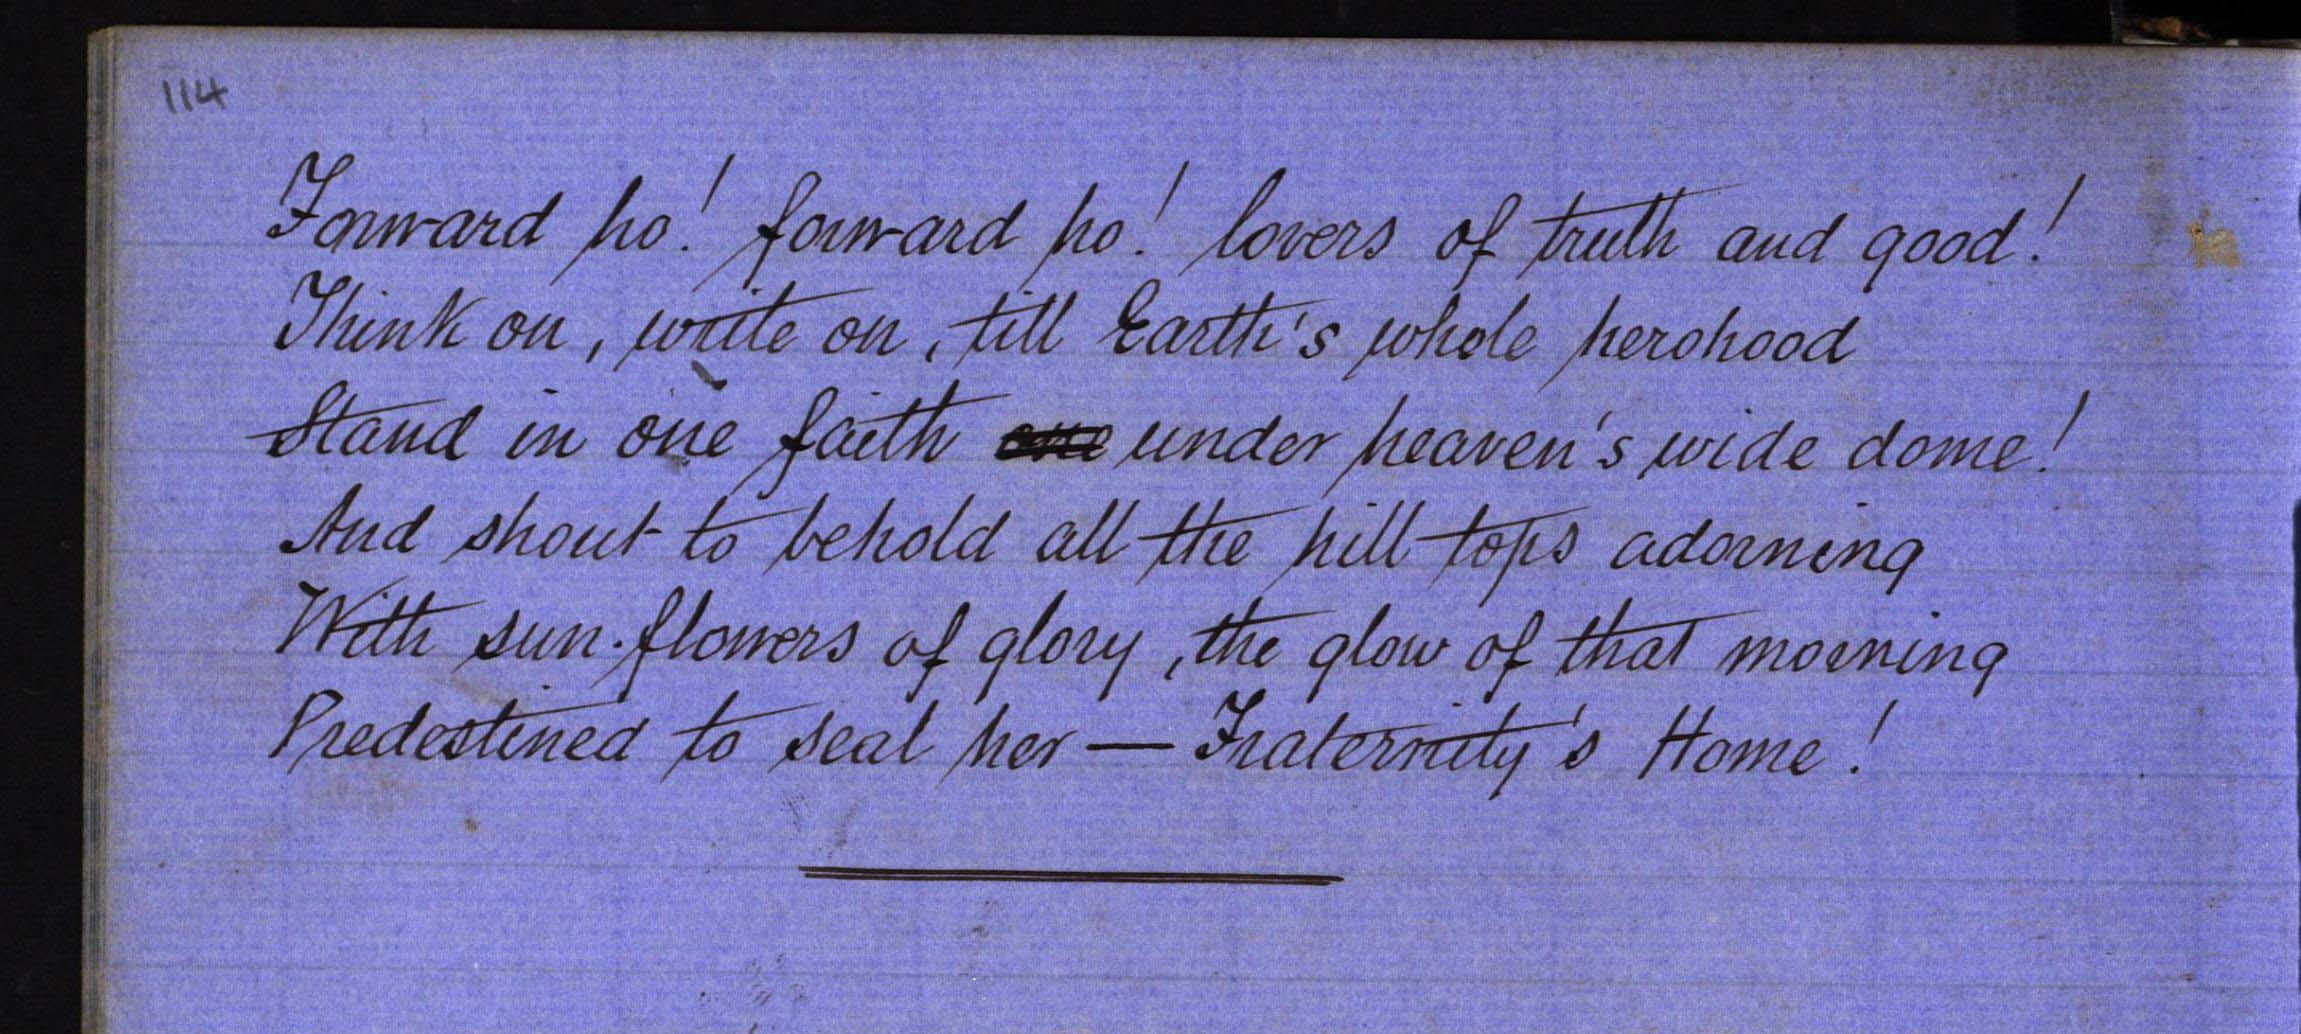 114
Forward ho! forward ho! lovers of truth and good!
Think on, write on, till Earth's whole herohood
Stand in one faith one under heaven's wide dome!
And shout to behold all the hill tops adorning
With sun-flowers of glory, the glow of that morning
Predestined to seal her — Fraternity's Home!